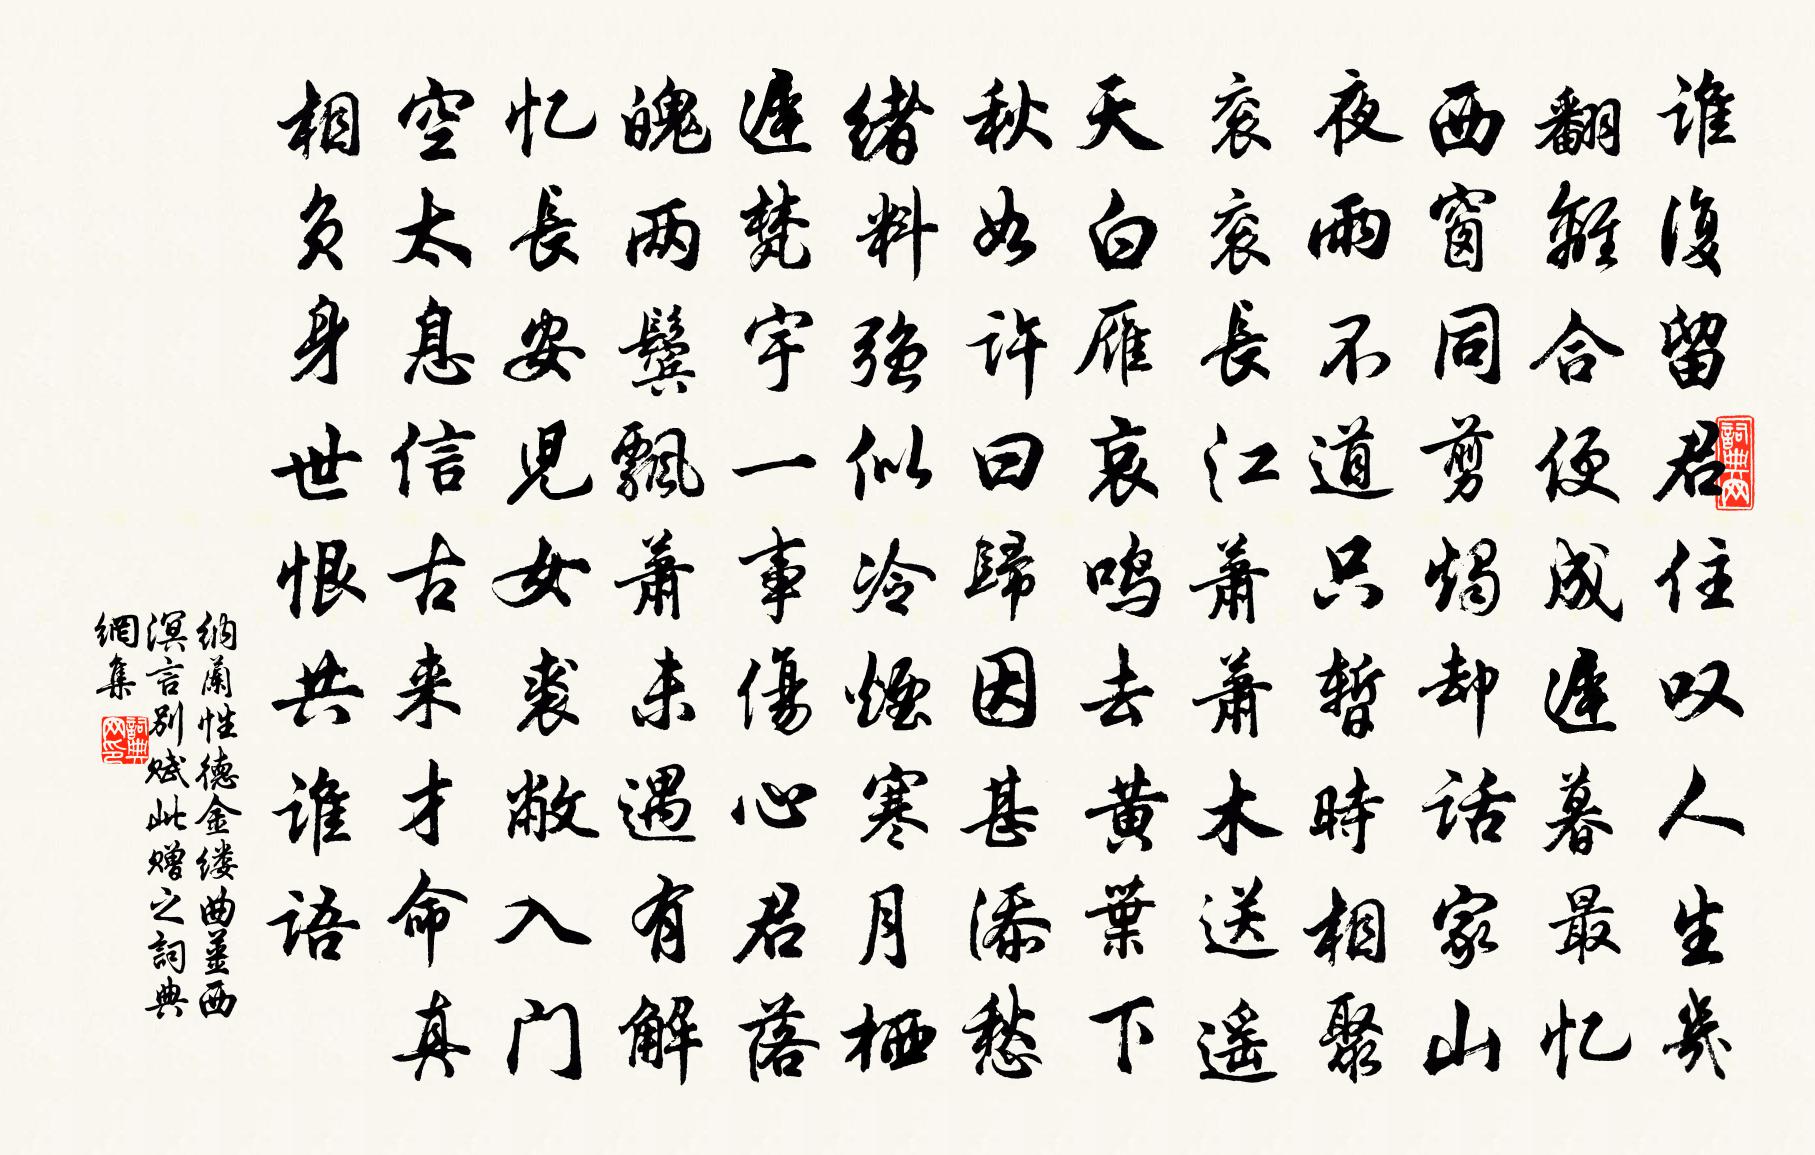 谁復留君住叹人生幾
翻離合便成遲暮最忆
西窗同剪燭却话家山
夜雨不道只暫時相聚
衮衮長江萧萧木送遥
天白雁哀鸣去黄葉下
秋如许曰歸因甚添愁
绪料强似冷煙寒月栖
遲梵宇一事傷心君落
魄两鬓飘萧未遇有解
忆長安児女裘敝入门
空太息信古来才命真
相負身世恨共谁语
纳蘭性德金缕曲姜西
溟言别赋此赠之詞典
網集
詞典网
詞典网印